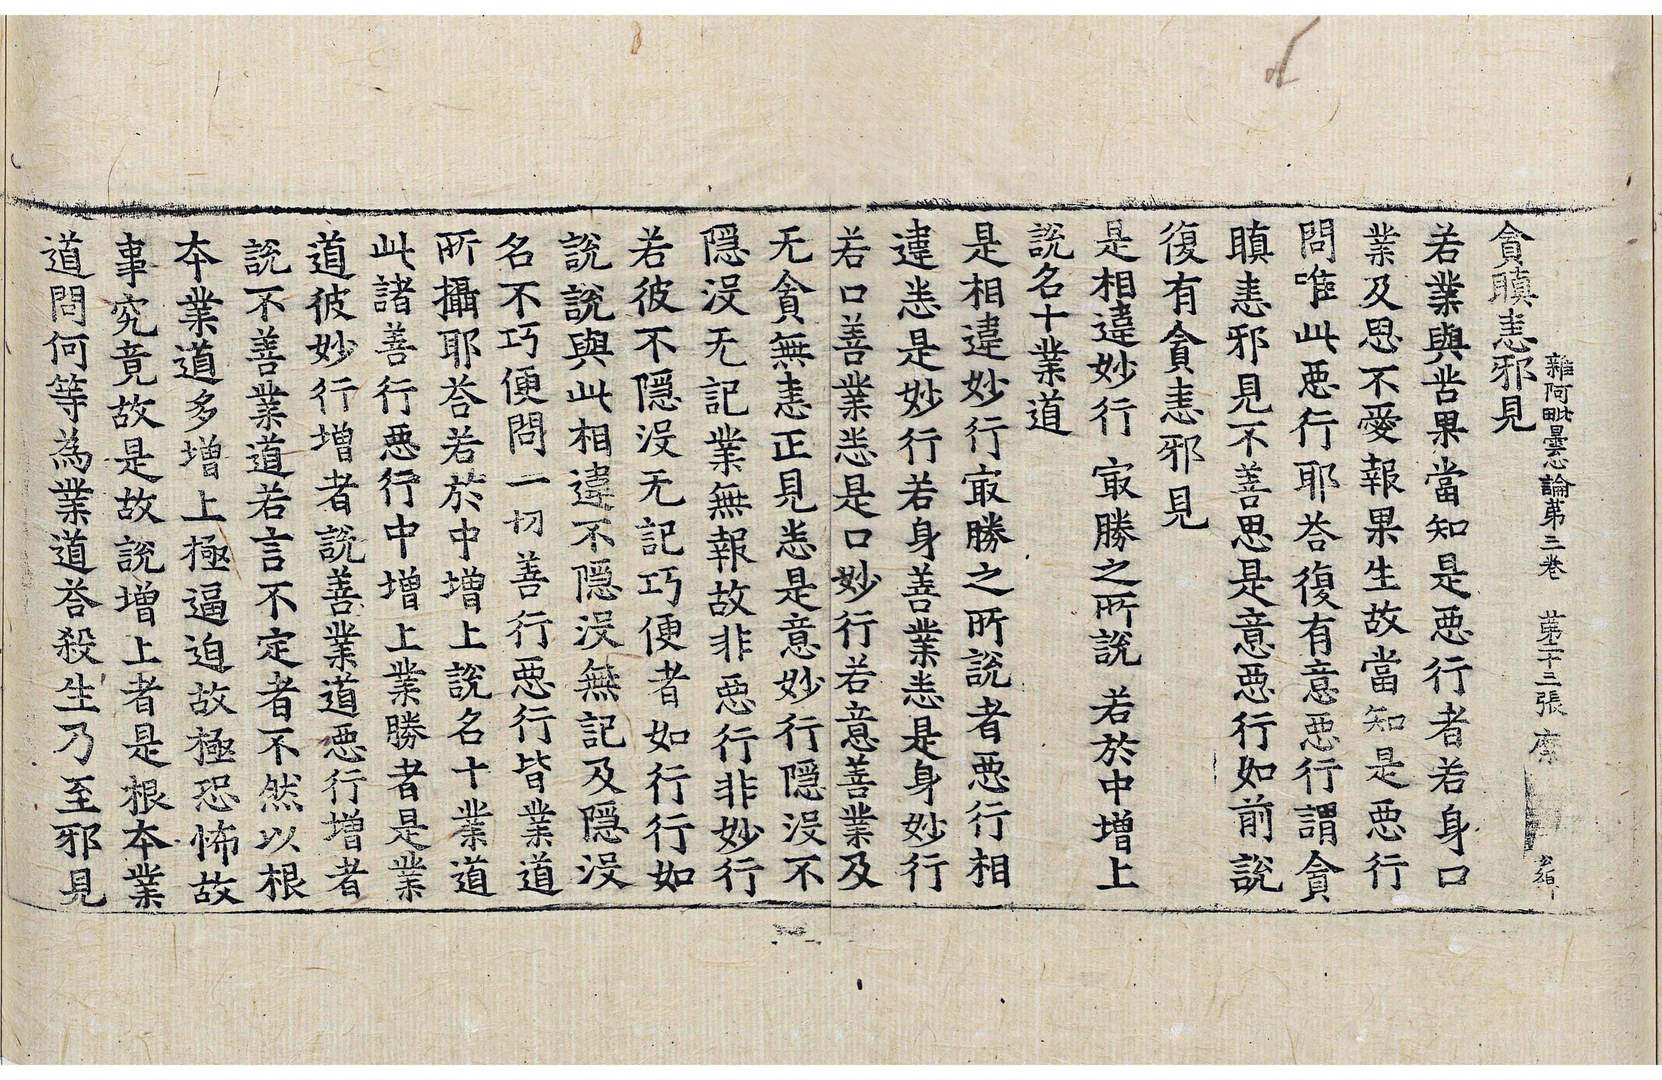 雜阿毗曇心論第三卷　第十三張　靡
貪瞋恚邪見
若業與苦果當知是惡行者若身口
業及思不愛報果生故當知是惡行
問唯此惡行耶荅復有意惡行謂貪
瞋恚邪見不善思是意惡行如前說
復有貪恚邪見
是相違妙行　㝡勝之所說　若於中增上
說名十業道
是相違妙行㝡勝之所說者惡行相
違恙是妙行若身善業恙是身妙行
若口善業恙是口妙行若意善業及
无貪無恚正見恙是意妙行隱沒不
隱沒无記業無報故非惡行非妙行
若彼不隱沒无記巧便者如行行如
說說與此相違不隱沒無記及隱沒
名不巧便問一切善行惡行皆業道
所攝耶荅若於中增上說名十業道
此諸善行惡行中增上業勝者是業
道彼妙行增者說善業道惡行增者
說不善業道若言不定者不然以根
本業道多增上極逼迫故極恐怖故
事究竟故是故說增上者是根本業
道問何等為業道荅殺生乃至邪見